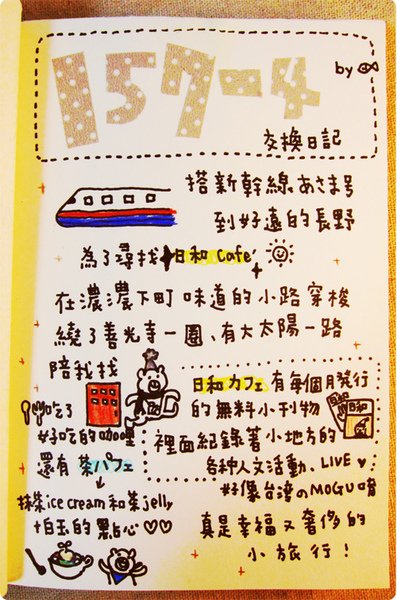 157-4
by
交換日記
搭新幹線あさま号
到好遠的長野
為了尋找日和Cafe'
在濃濃下町味道的小路穿梭
繞了善光寺一圈、有大太陽一路
陪我找
吃了
好吃的咖哩
還有茶パフェ
抹茶ice cream和茶jelly
+白玉的點心♡♡
日和カフェ有每個月發行
的無料小刊物
裡面紀錄著小地方的
各种人文活動、LIVE♥
好像台灣のMOGU唷
日和
真是幸福又奢侈的
小旅行!